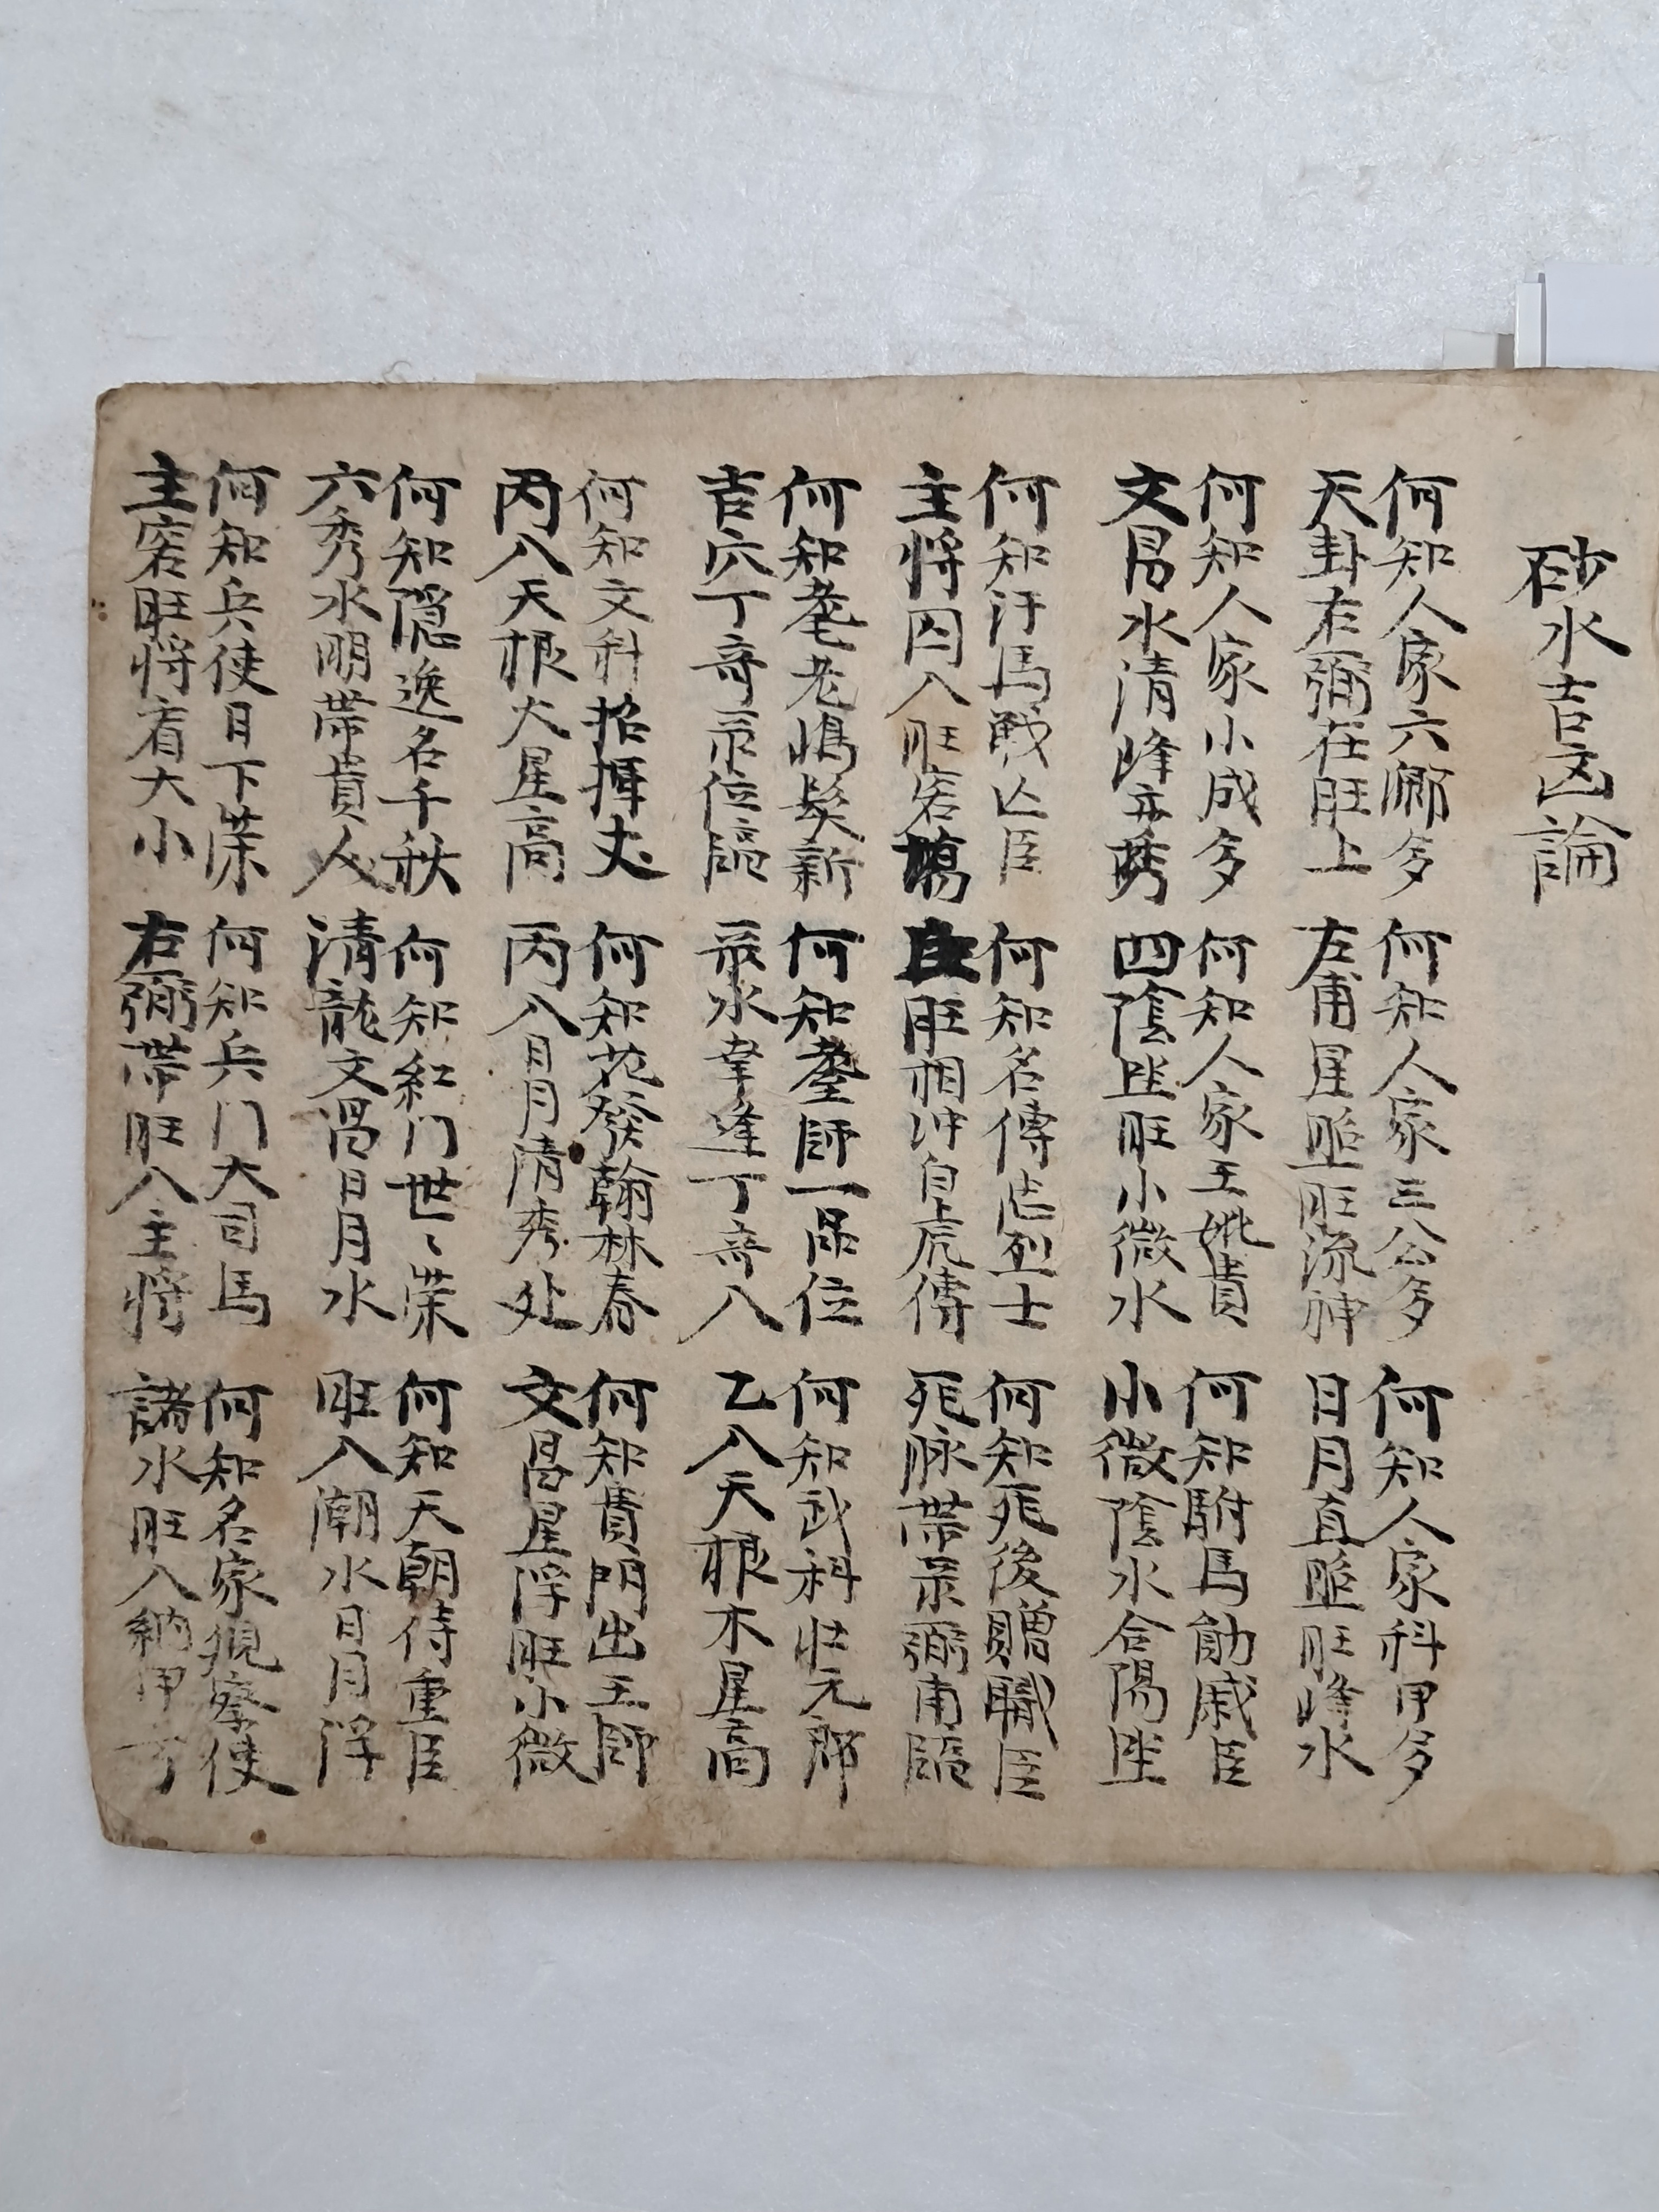 砂水吉凶論
何知人家六卿多 何知人家三公多 何知人家科甲多
天卦右弼在旺上 左甫星照旺流神 日月直照旺峰水
何知人家小成多 何知人家王妣貴 何知駙馬勛戚臣
文昌水清峰亦秀 四陰坐旺小微水 小微陰水合陽坐
何知汗馬戰亡臣 何知名傳忠烈士 何知死後贈職臣
主將囚入旺客 旺相冲白虎傳 死脉帶录弼甫臨
何知耄老鳩髮新 何知臺師一品位 何知武科壯元郎
吉穴丁奇录位臨 录水幸逢丁奇入 乙入天根木星高
何知文科招撫丈 何知苑發翰林春 何知貴門出王師
丙入天根火星高 丙入日月清秀处 文昌星浮旺小微
何知隠逸名千秋 何知紅门世〻荣 何知天朝侍重臣
六秀水明帶貴人 清龍文昌日月水 旺入潮水日月浮
何知兵使目下荣 何知兵门大司馬 何知名家視察使
主客旺將看大小 右弼帶旺入主將 諸水旺入納甲方